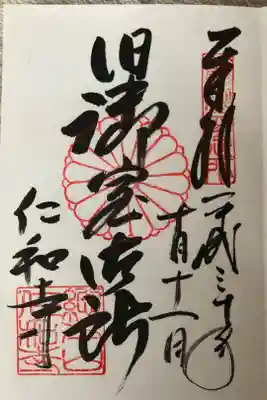 奉拝 平成三十年
十一月十一日
旧御室御所
仁和寺